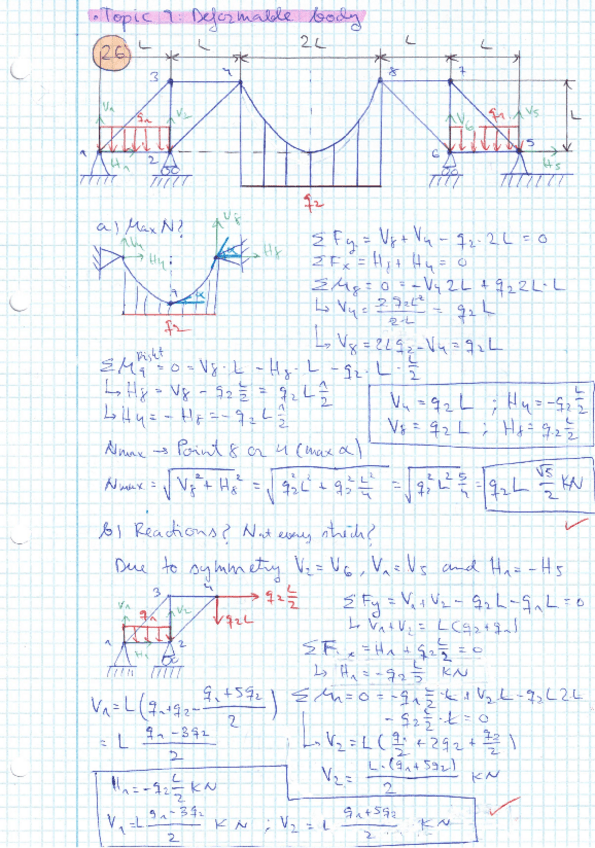 • Topic 9: Deformable body
26
L L 2L L L
3 4 8 7
V1 q1 V2 V6 q1 V5 L
1 H1 2 6 5 H5
q2
a) Max N?
V4 H4 V8 H8
9 α
q2
ΣFy = V8 + V4 - q2 · 2L = 0
ΣFx = H8 + H4 = 0
ΣM8 = 0 = -V4 2L + q2 2L · L
↳ V4 = 2q2L²/2L = q2 L
↳ V8 = 2Lq2 - V4 = q2 L
ΣM9 right = 0 = V8 · L - H8 · L - q2 · L · L/2
↳ H8 = V8 - q2 L/2 = q2 L 1/2
↳ H4 = - H8 = - q2 L 1/2
V4 = q2 L ; H4 = -q2 L/2
V8 = q2 L ; H8 = q2 L/2
Nmax → Point 8 or 4 (max α)
Nmax = √(V8² + H8²) = √(q2²L² + q2² L²/4) = √(q2² L² 5/4) = q2 L √5/2 KN
b) Reactions?
Due to symmetry V2 = V6, V1 = V5 and H1 = - H5
3 4 q2 L/2
V1 q1 V2 q2L
1 H1 2
ΣFy = V1 + V2 - q2L - q1L = 0
↳ V1 + V2 = L(q2 + q1)
ΣFx = H1 + q2 L/2 = 0
↳ H1 = -q2 L/2 KN
ΣM1 = 0 = -q1 L/2 · L + V2 L - q2L 2L
- q2 L/2 · L = 0
↳ V2 = L(q1/2 + 2q2 + q2/2)
V2 = L·(q1 + 5q2)/2 KN
V1 = L(q1 + q2 - (q1 + 5q2)/2)
= L (q1 - 3q2)/2
H1 = -q2 L/2 KN
V1 = L (q1 - 3q2)/2 KN ; V2 = L (q1 + 5q2)/2 KN